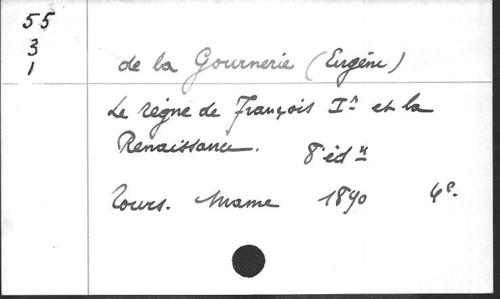 55
3
1
de la Gournerie (Eugène)
Le règne de François Ier et la
Renaissance. 8e édn
Tours. Mame 1890 4o.